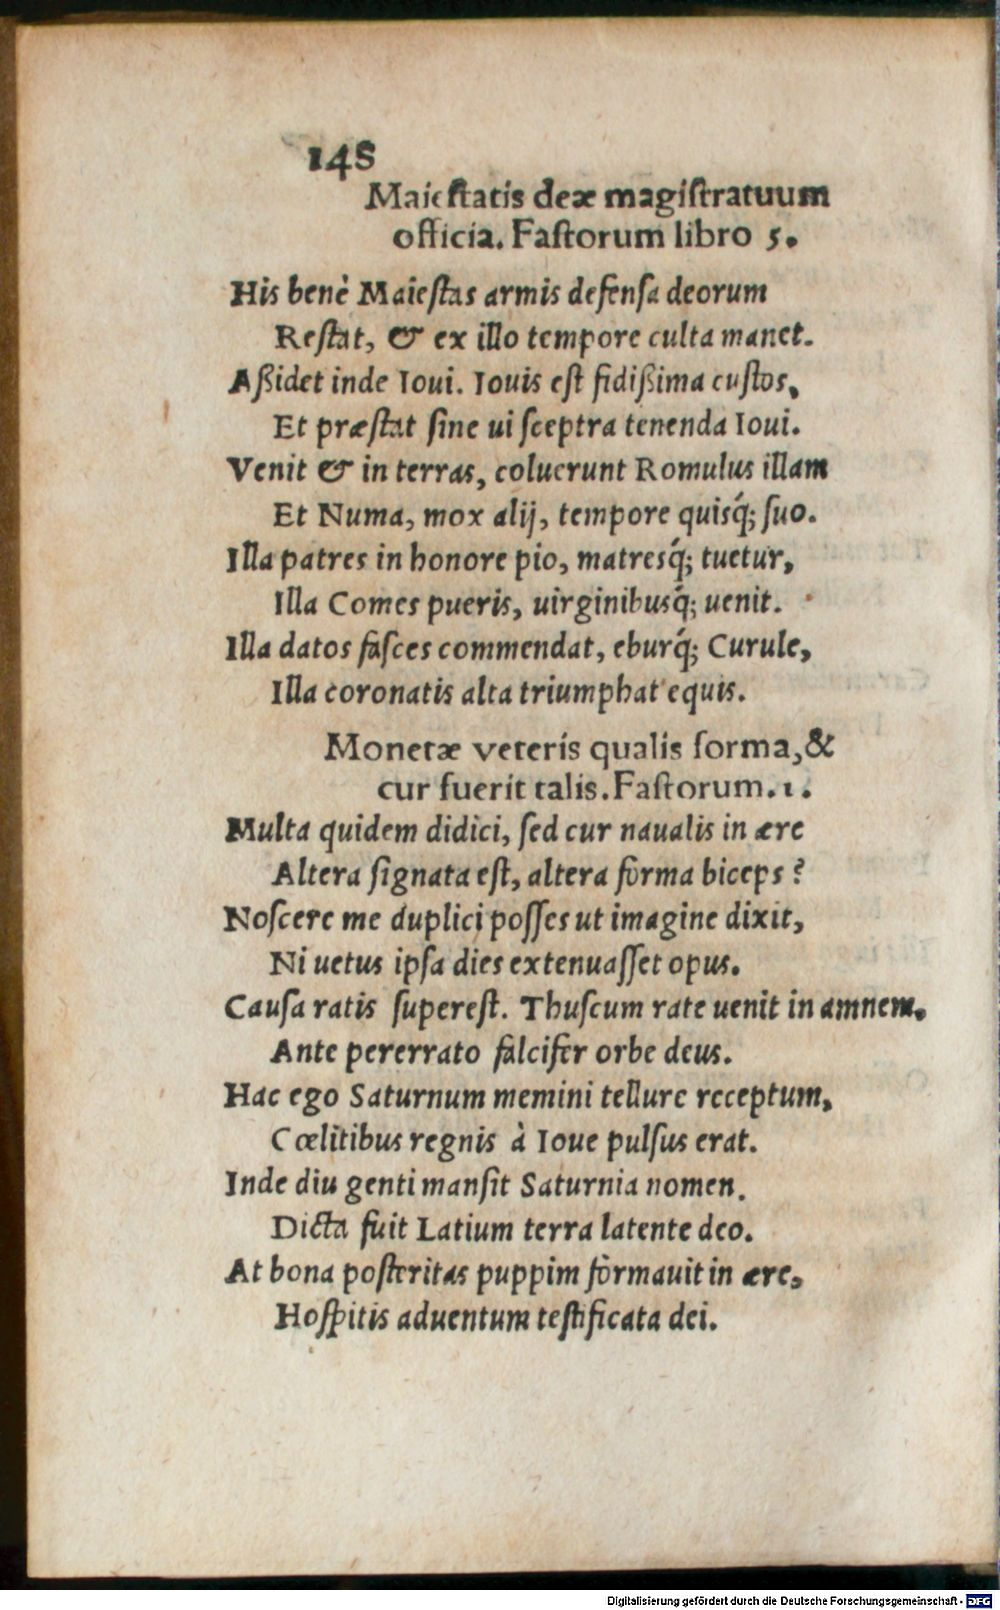 148
Maiestatis deæ magistratuum
officia. Fastorum libro 5.
His benè Maiestas armis defensa deorum
Restat, & ex illo tempore culta manet.
Aßidet inde Ioui. Iouis est fidißima custos,
Et præstat sine ui sceptra tenenda Ioui.
Venit & in terras, coluerunt Romulus illam
Et Numa, mox alij, tempore quisq́; suo.
Illa patres in honore pio, matresq́; tuetur,
Illa Comes pueris, uirginibusq́; uenit.
Illa datos fasces commendat, eburq́; Curule,
Illa coronatis alta triumphat equis.
Monetæ veteris qualis forma, &
cur fuerit talis. Fastorum. 1.
Multa quidem didici, sed cur naualis in ære
Altera signata est, altera forma biceps?
Noscere me duplici posses ut imagine dixit,
Ni uetus ipsa dies extenuasset opus.
Causa ratis superest. Thuscum rate uenit in amnem.
Ante pererrato falcifer orbe deus.
Hac ego Saturnum memini tellure receptum,
Cœlitibus regnis à Ioue pulsus erat.
Inde diu genti mansit Saturnia nomen.
Dicta fuit Latium terra latente deo.
At bona posteritas puppim formauit in ære,
Hospitis aduentum testificata dei.
Digitalisierung gefördert durch die Deutsche Forschungsgemeinschaft - DFG